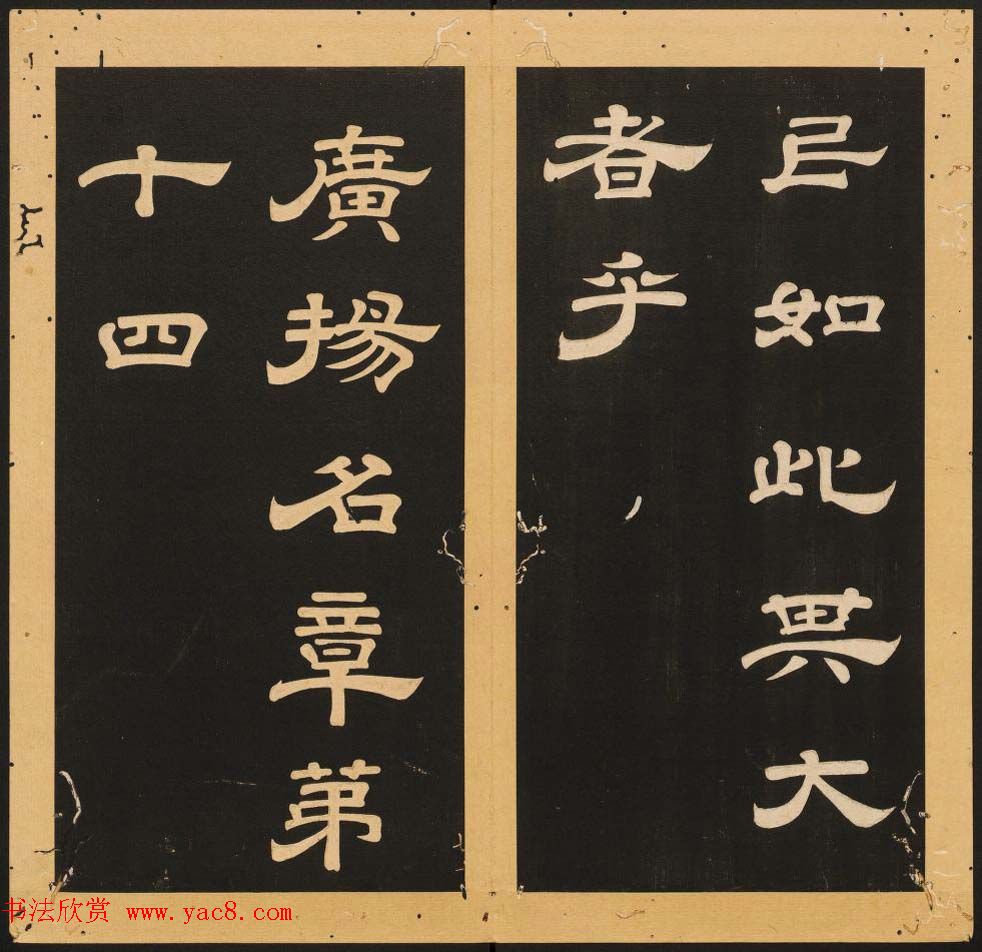 民如此其大
者乎
廣揚名章第
十四
书法欣赏 www.yac8.com